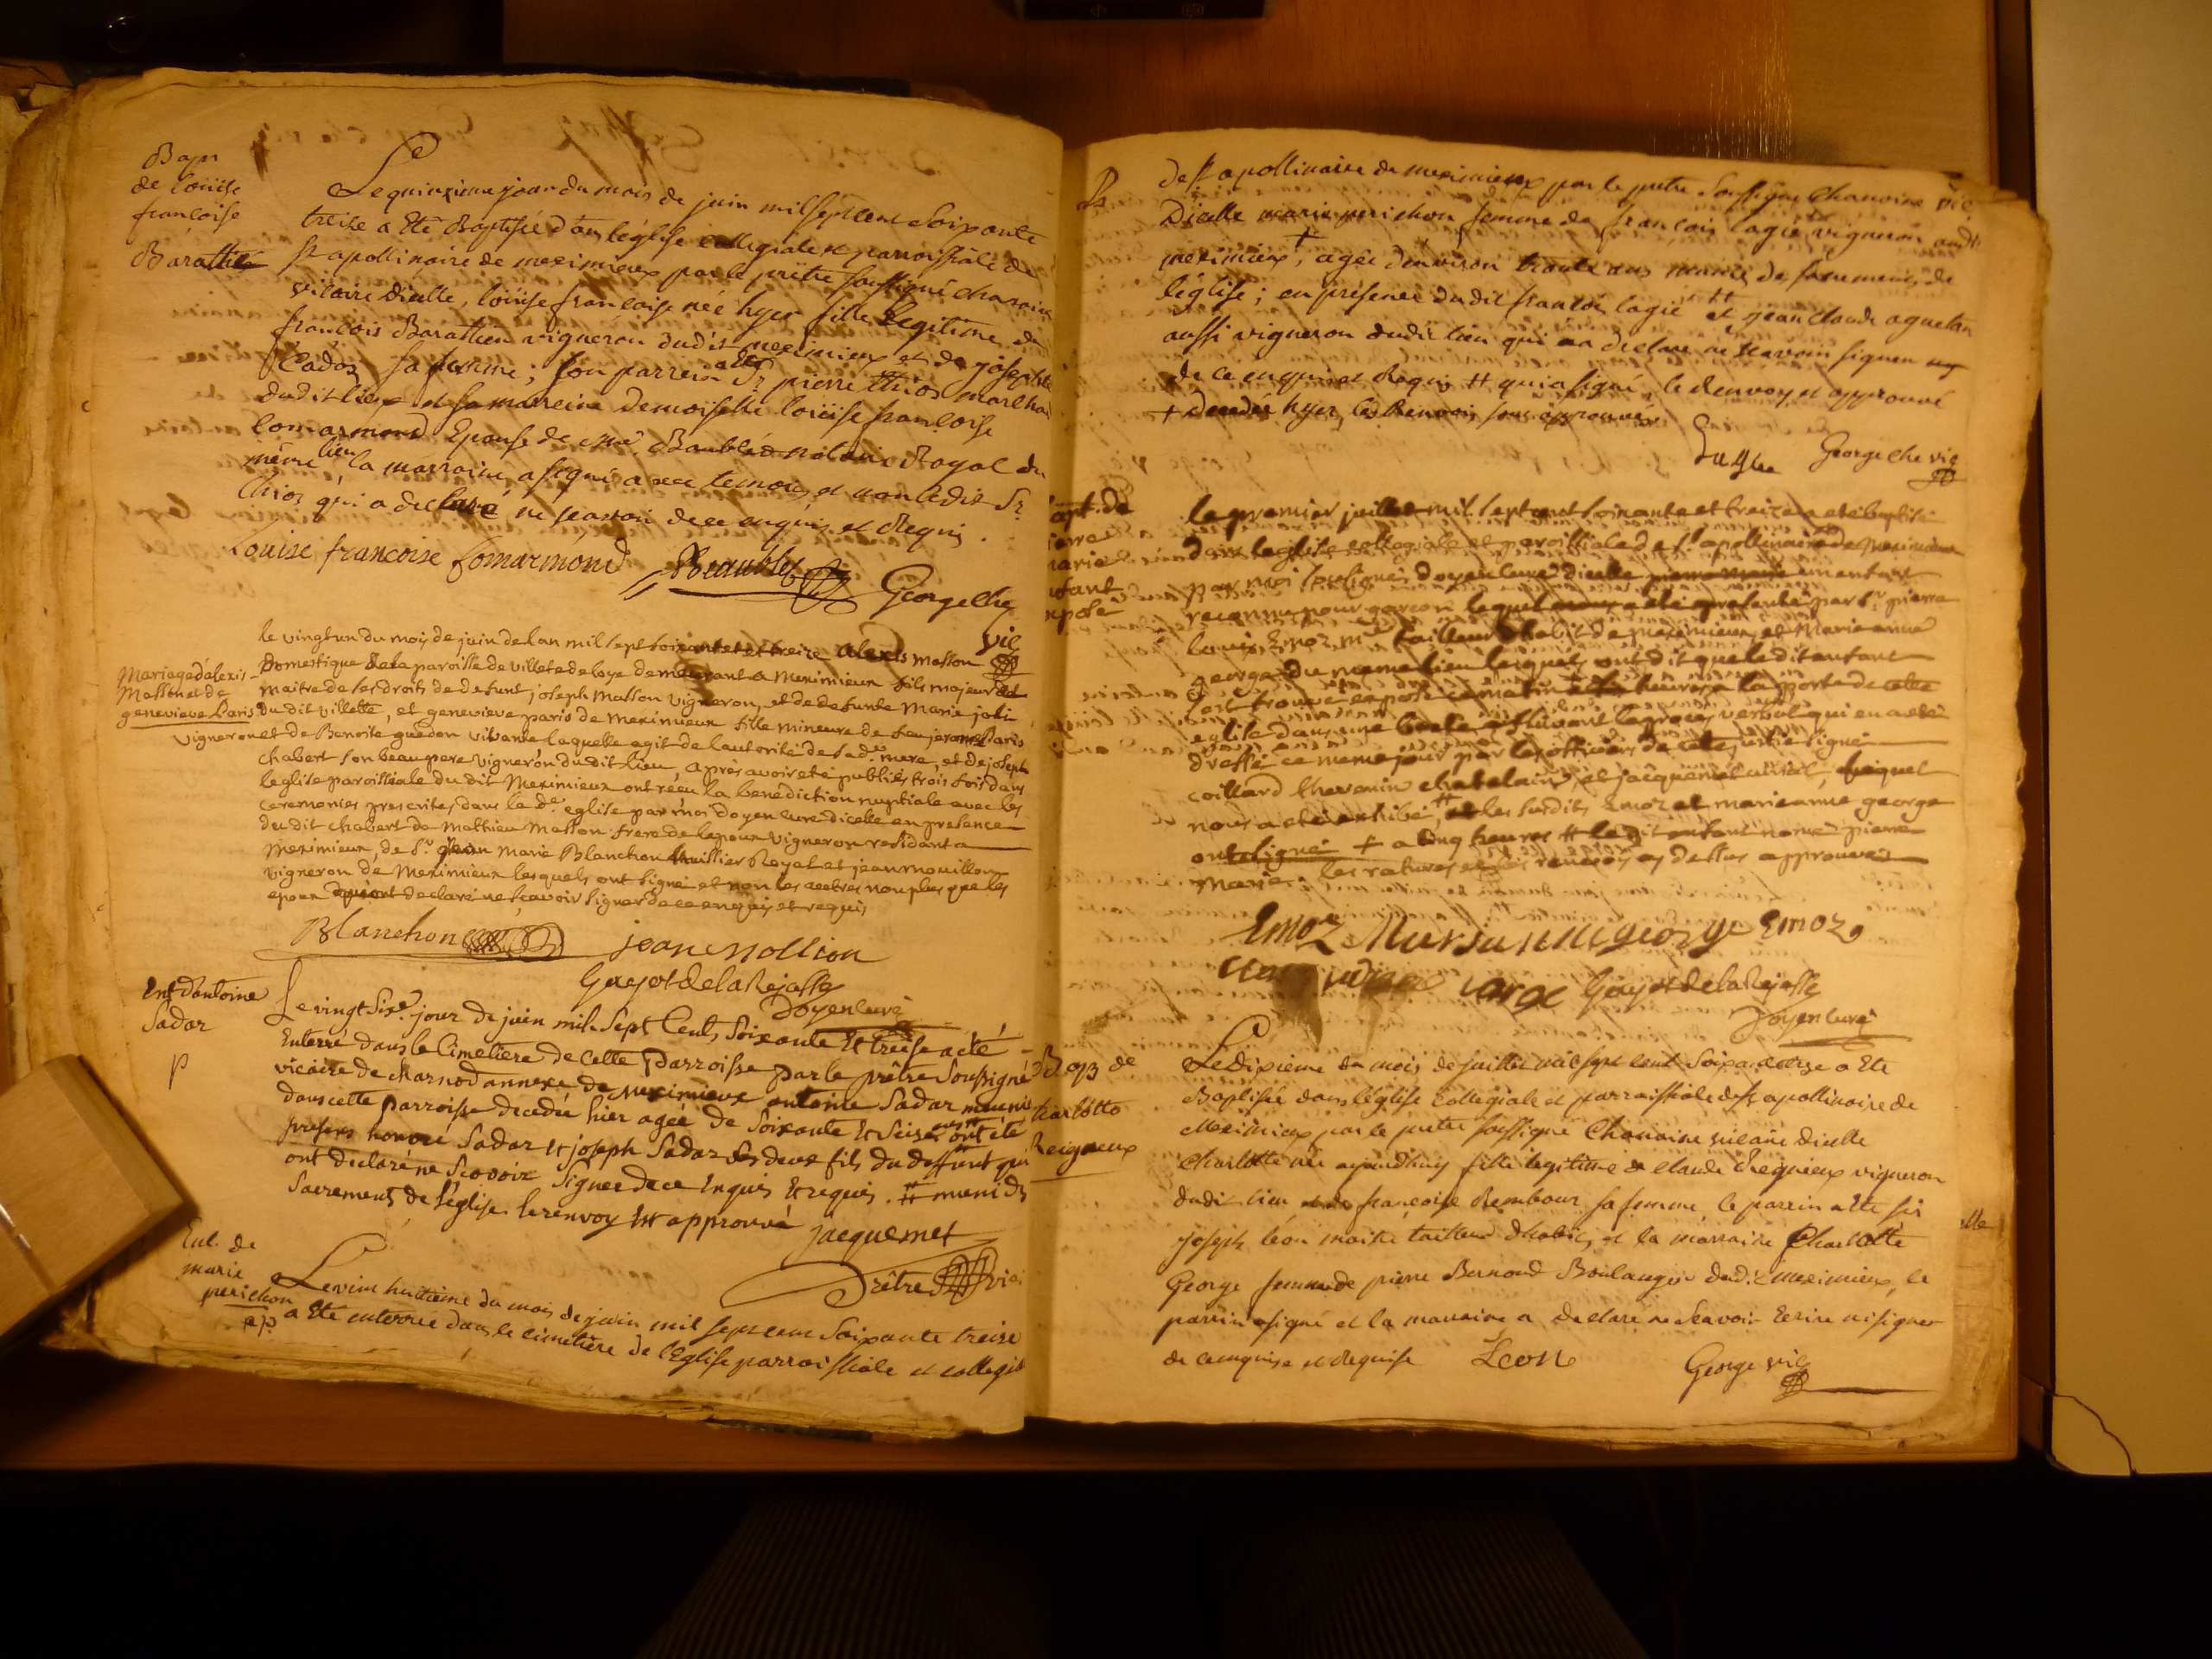 Bapt
de loüise
francoise
Barathie
Le quinzieme jour du mois de juin mil sept cent soixante
treize a Eté Baptisée dans léglise collegiale et parroissiale de
st apollinaire de meximieux par le prètre soussigné chanoine
vicaire dicelle, loüise francoise née hyer fille legitime de
francois Barathieu vigneron dudit meximieux et de josephte
Cadoz sa femme; son parrein a été Sr pierre thioz marchand
dudit lieu et sa marreine demoiselle loüise francoise
lomarmond Epouse de me Baublée notaire Royal du
même lieu la marraine a signé avec temoins et non ledit Sr
thioz qui a declaré ne scavoir de ce enquis et Requis.
Louise francoise Lomarmond Beaublez George che
vic
Mariage d'alexis
Masson et de
genevieve Paris
le vingt un du mois de juin de lan mil sept soixante et treize alexis masson
Domestique de la paroisse de villete de loye demeurant a Meximieux fils majeur et
maitre de ses droits de defunt joseph masson vigneron, et de defunte Marie joli
du dit villette, et genevieve paris de meximieux fille mineure de feu jerome Paris
vigneron et de Benoite guedon vivante laquelle agit de l'autorité de sad.e mere, et de joseph
chabert son beau pere vigneron du dit lieu, apres avoir eté publiés trois fois dans
leglise paroissiale du dit Meximieux ont reçu la benediction nuptiale avec les
ceremonies prescrites, dans la de eglise par moi doyen curé dicelle en presence
du dit chabert de Mathieu Masson frere de lepoux vigneron residant a
Meximieux, de Sr jean Marie Blanchon huissier Royal et jean mouillon
vigneron de Meximieux lesquels ont signé et non les autres non plus que les
epoux qui ont declaré ne scavoir signer de ce enquis et requis
Blanchon jean mollion
Guyot de la Rejasse
Doyen curé
Ent d'antoine
Sadar
p
Le vingt six.e jour de juin mil sept Cent, soixante Et treise a eté
Enterré dans le Cimetiere de Cette parroisse par le prêtre Soussigné
vicaire de charnod annexe de meximieux antoine Sadar
dans cette parroisse decedé hier agée de Soixante Et Seise ans ont été
presens honoré Sadar et joseph Sadar Ses deux fils du deffunt qui
ont declaré ne Sçavoir Signer de ce Enquis Et requis. # muni des
Sacrements de l'eglise. le renvoy Est approuvé
jacquemet
Prêtre vic
Ent. de
marie
perichon
Le vint huitieme du mois de juin mil sept cent soixante treize
a Eté enterrée dans le cimetière de l'Eglise parroissiale et collegiale
de st apollinaire de meximieux par le prètre soussigné chanoine vic
Dicelle marie perichon femme de francois lagie vigneron audit
meximieux, + agée denviron trante ans munie des sacremens de
léglise; en présence dudit francois lagie ## et jean claude aguetan
aussi vigneron dudit lieu qui a declaré ne scavoir signer
de ce enquis et Requis ## qui a signé le Renvoy et approuvé
+ decedée hyer les Renvois sont approuvés
George che vic
apt. de
ierre
marie
nfant
xposé
le premier juillet mil sept cent soixante et treize a eté baptisé
dans leglise collegiale et paroissiale de st apollinaire de Meximieux
par moi soussigné doyen curé dicelle un enfant
reconnu pour garcon lequel a eté presenté par Sr pierre
louis Emoz me tailleur d'habit de meximieux, et Marie anne
george du meme lieu lesquels ont dit que le dit enfant
sest trouvé exposé ce matin + a la porte de cette
eglise dans une boete suivant le proces verbal qui en a eté
dressé ce meme jour par les officiers de cette ville signé
coillard thevenin chatelain, et jacquemet, lequel
nous a eté exhibé, ## les susdits Emoz et marie anne george
ont signé + a cinq heures ## le dit enfant nommé pierre
Marie. les ratures et les renvois cy dessus approuvés
Emoz Mariane george Emoz
Guyot de la Rejasse
Doyen curé
Bap de
charlotte
Reigneux
Le dixieme du mois de juillet mil sept cent soixante treize a Eté
Baptisée dans l'église Collegiale et parroissiale de st apollinaire de
Meximieux par le prètre soussigné Chanoine vicaire dicelle
Charlotte née aujourdhuy fille legitime de claude Regnieux vigneron
dudit lieu et de francoise Rembour sa femme, le parrin a Eté sir
joseph léon maitre tailleur d'habits, et la marraine Charlotte
George femme de pierre Bernond Boulanger dudit meximieux, le
parrin a signé et la marraine a declaré ne scavoir Ecrire ni signer
de ce enquise et Requise Leon George vic